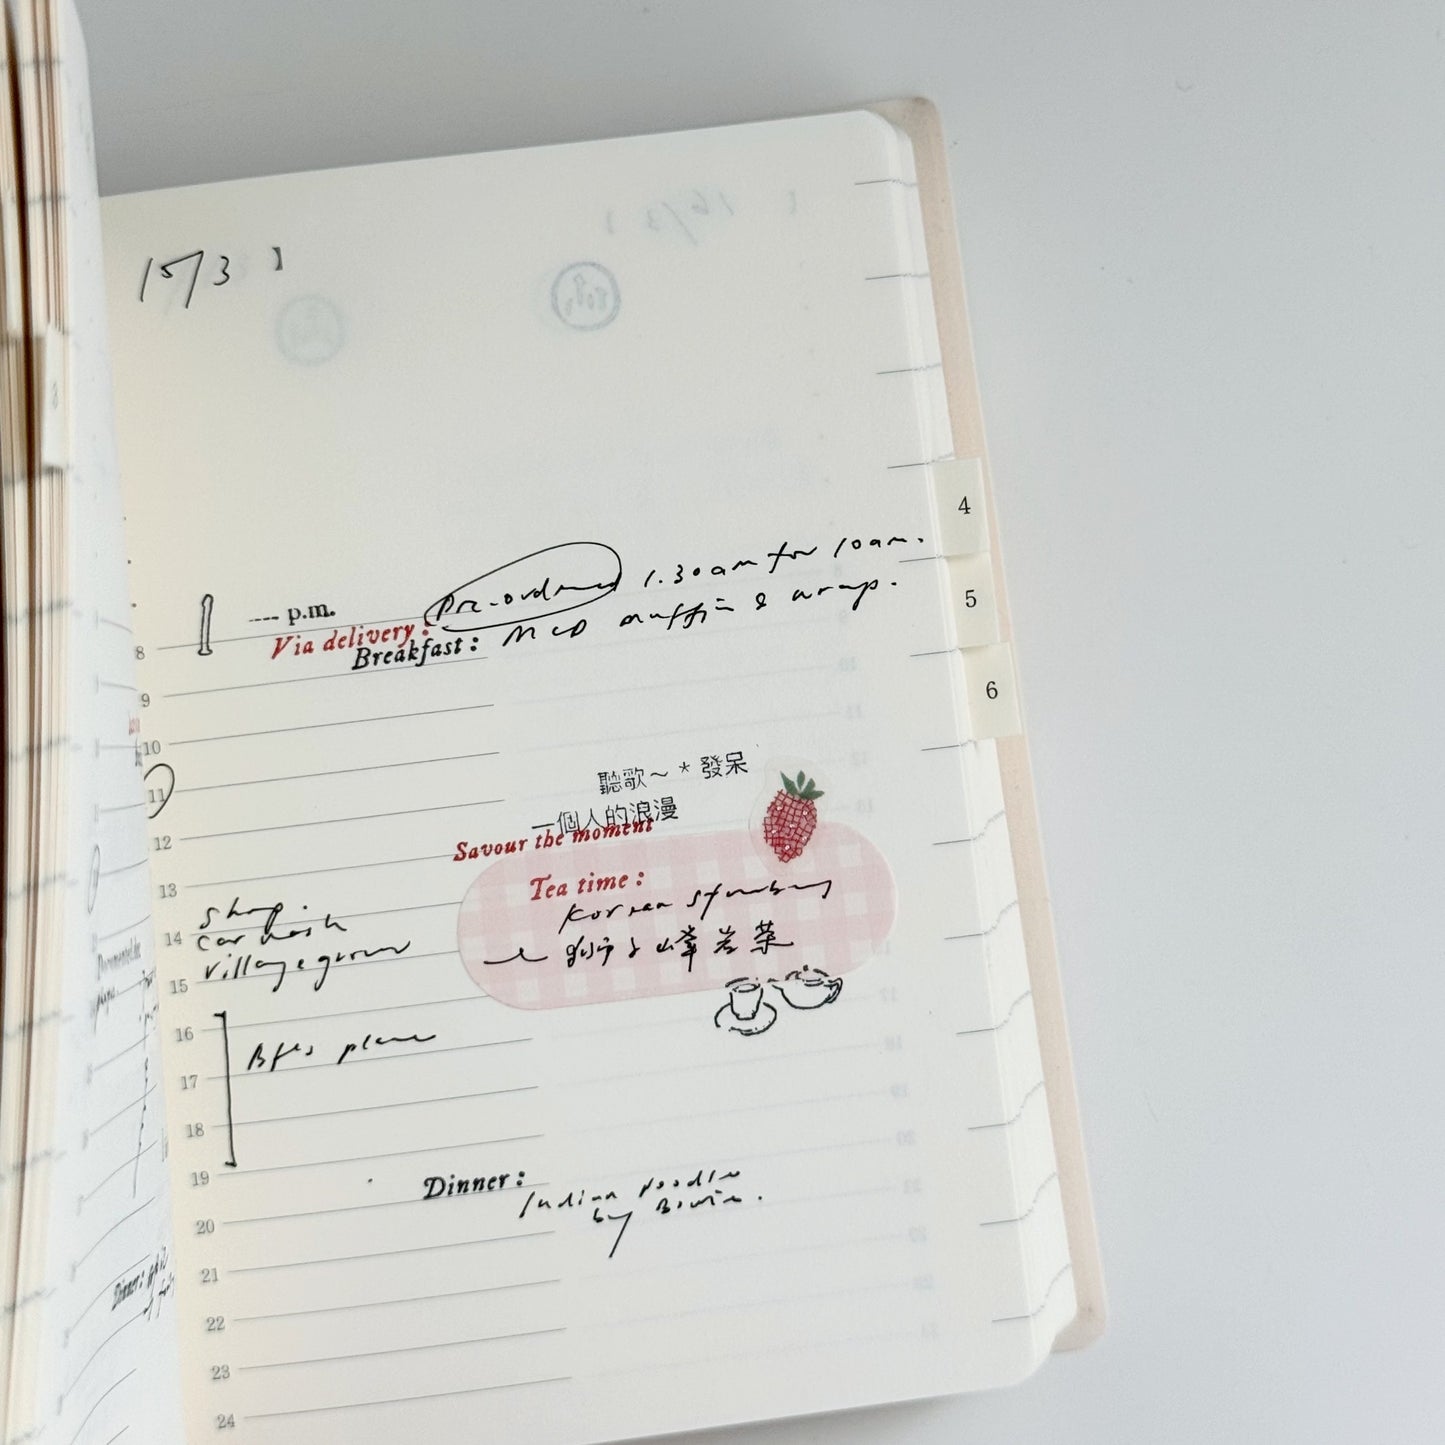 15/3 】
4
5
6
---- p.m.
Via delivery :
Pre-ordered 1.30am for 10am.
Breakfast : McD muffin & wrap.
8
9
10
11
12
13
14
15
16
17
18
19
20
21
22
23
24
聽歌～ * 發呆
一個人的浪漫
Savour the moment
Tea time :
Korean strawberry
獅子峰岩茶
Shop.
Car wash
Village grocer
Bf's place
Dinner :
Indian noodle
by